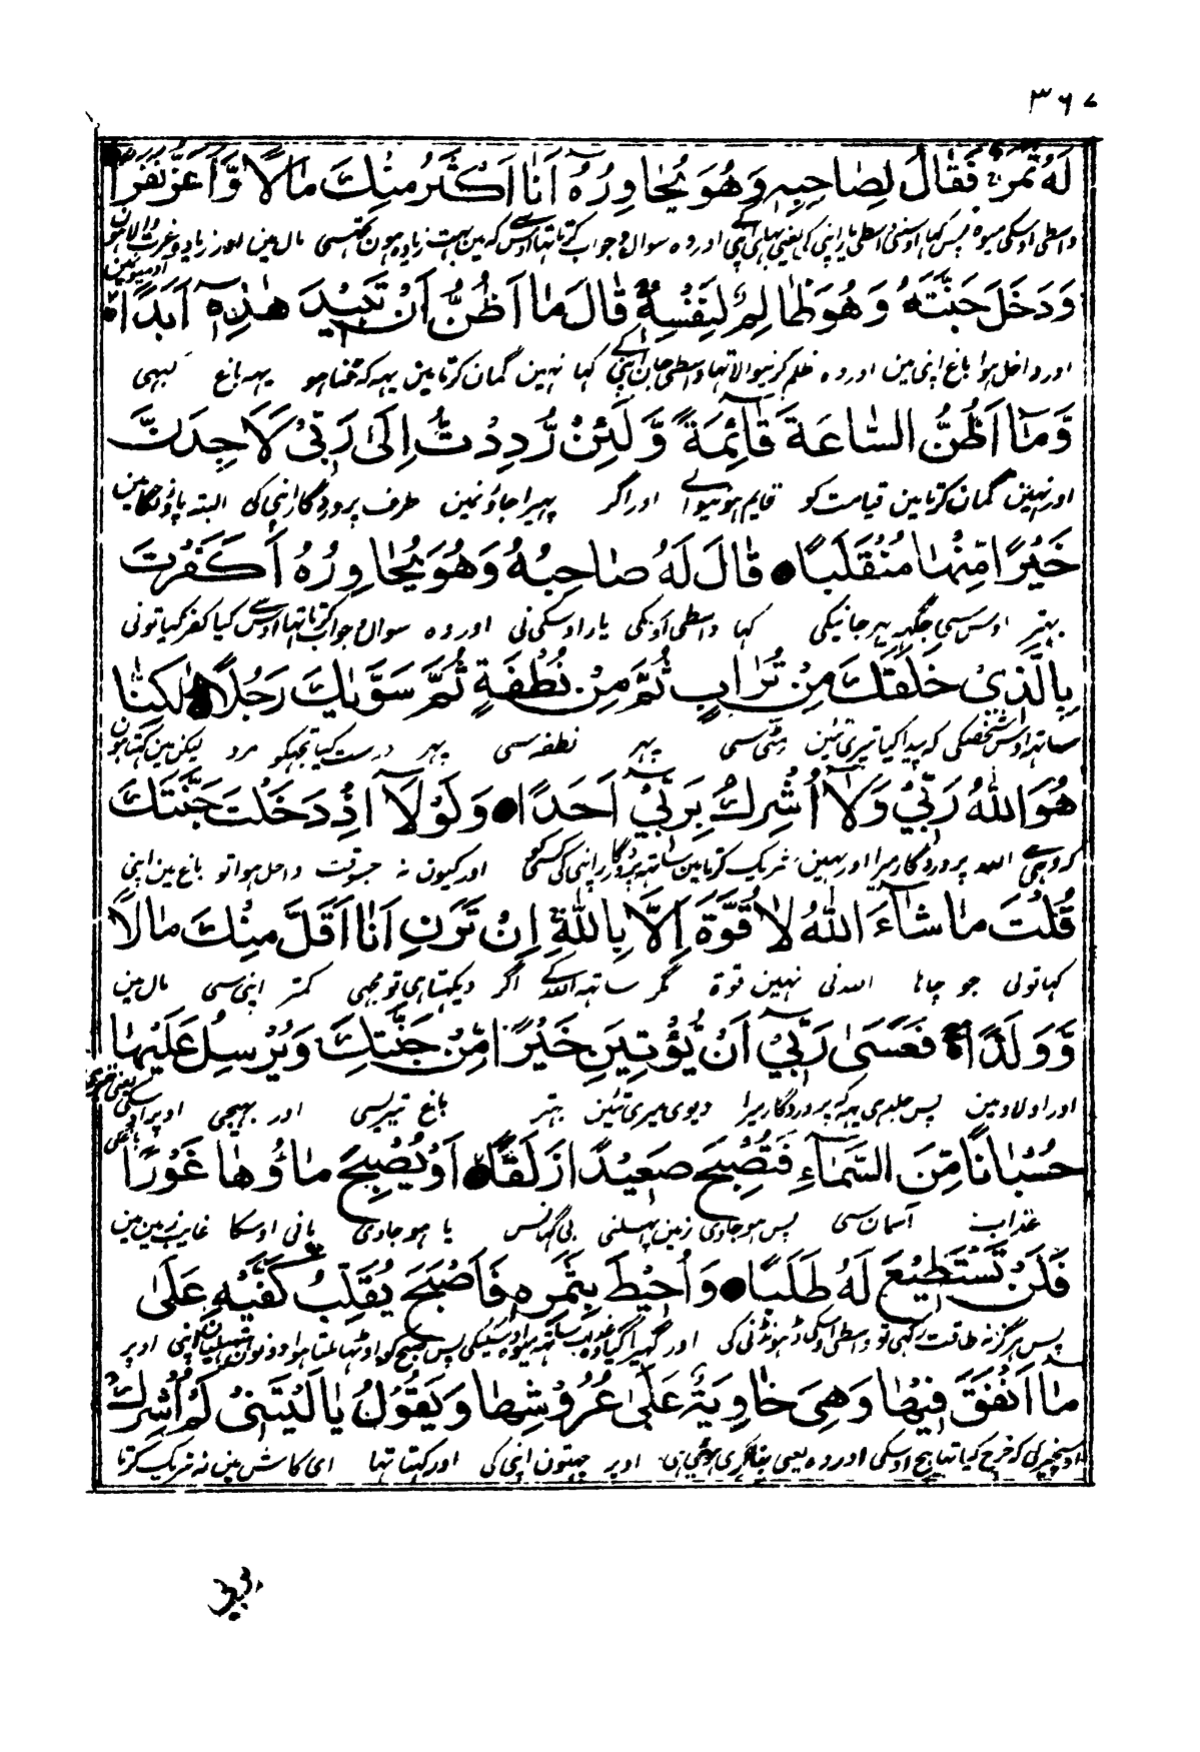 ۳۶۷
لَهُ ثَمَرٌ فَقَالَ لِصَاحِبِهٖ وَهُوَ يُحَاوِرُهُ اَنَا اَكْثَرُ مِنْكَ مَالًا وَّاَعَزُّ نَفَرًا
واسطی اوسکی میوہ پس کہا اوسنی واسطی یار اپنی کی یعنی بہائی اپنی کے اور وہ سوال و جواب کرتا تہا اوس سے کہ مین بہت زیادہ ہون تجہسی مال مین اور زیادہ عزت والا ہون آدمیونمین
وَدَخَلَ جَنَّتَهُ وَهُوَ ظَالِمٌ لِنَفْسِهٖ قَالَ مَا اَظُنُّ اَنْ تَبِيْدَ هٰذِهٖ اَبَدًا
اور داخل ہوا باغ اپنی مین اور وہ ظلم کرنیوالا تہا واسطی جان اپنی کے کہا نہین گمان کرتا مین یہہ کہ فنا ہو یہہ باغ کبہی
وَّمَا اَظُنُّ السَّاعَةَ قَآئِمَةً وَّلَئِنْ رُّدِدْتُّ اِلٰى رَبِّىْ لَاَجِدَنَّ
اور نہین گمان کرتا مین قیامت کو قایم ہونیوالے اور اگر پہیرا جاؤنمین طرف پروردگار اپنی کی البتہ پاؤنگا مین
خَيْرًا مِّنْهَا مُنْقَلَبًا قَالَ لَهُ صَاحِبُهُ وَهُوَ يُحَاوِرُهُ اَكَفَرْتَ
بہتر اوس سی جگہہ پہر جانیکی کہا واسطی اوسکی یار اوسکی نی اور وہ سوال و جواب کرتا تہا اوس سے کیا کفر کیا تونی
بِالَّذِىْ خَلَقَكَ مِنْ تُرَابٍ ثُمَّ مِنْ نُطْفَةٍ ثُمَّ سَوّٰىكَ رَجُلًا لٰكِنَّا
ساتہہ اوس شخصکی کہ پیدا کیا تیری تئین مٹی سی پہر نطفہ سی پہر درست کیا تجہکو مرد لیکن مین کہتا ہون
هُوَ اللهُ رَبِّىْ وَلَا اُشْرِكُ بِرَبِّىْ اَحَدًا وَلَوْلَا اِذْ دَخَلْتَ جَنَّتَكَ
کہ وہی ہے اللہ پروردگار میرا اور نہین شریک کرتا مین ساتہہ پروردگار اپنی کی کسیکو اور کیون نہ جسوقت داخل ہوا تو باغ مین اپنی
قُلْتَ مَا شَآءَ اللهُ لَا قُوَّةَ اِلَّا بِاللهِ اِنْ تَرَنِ اَنَا اَقَلَّ مِنْكَ مَالًا
کہا تونی جو چاہا اللہ نی نہین قوة مگر ساتہہ اللہ کے اگر دیکہتا ہی تو مجہی کمتر اپنی سی مال مین
وَّوَلَدًا فَعَسٰى رَبِّىْ اَنْ يُّؤْتِيَنِ خَيْرًا مِّنْ جَنَّتِكَ وَيُرْسِلَ عَلَيْهَا
اور اولاد مین پس جلد ہی یہہ کہ پروردگار میرا دیوی میری تئین بہتر باغ تیریسی اور بہیجی اوپر اوسکی
حُسْبَانًا مِّنَ السَّمَآءِ فَتُصْبِحَ صَعِيْدًا زَلَقًا اَوْ يُصْبِحَ مَاؤُهَا غَوْرًا
عذاب آسمان سی پس ہو جاوی زمین پہسلنی بی گہانس یا ہو جاوی پانی اوسکا غایب زمین مین
فَلَنْ تَسْتَطِيْعَ لَهُ طَلَبًا وَاُحِيْطَ بِثَمَرِهٖ فَاَصْبَحَ يُقَلِّبُ كَفَّيْهِ عَلٰى
پس ہرگز نہ طاقت رکہی تو واسطی اوسکی ڈہونڈنی کی اور گہیرا گیا عذاب ساتہہ میوہ اوسکی پس صبح کو اوٹہا ملتا ہوا دونون ہتیلیان اپنی اوپر
مَا اَنْفَقَ فِيْهَا وَهِىَ خَاوِيَةٌ عَلٰى عُرُوْشِهَا وَيَقُوْلُ يَا لَيْتَنِىْ لَمْ اُشْرِكْ
اوس چیز کی کہ خرچ کیا تہا بیچ اوسکی اور وہ یعنی باغ گری ہوئی ہی اوپر چہتون اپنی کی اور کہتا تہا ای کاش مین نہ شریک کرتا